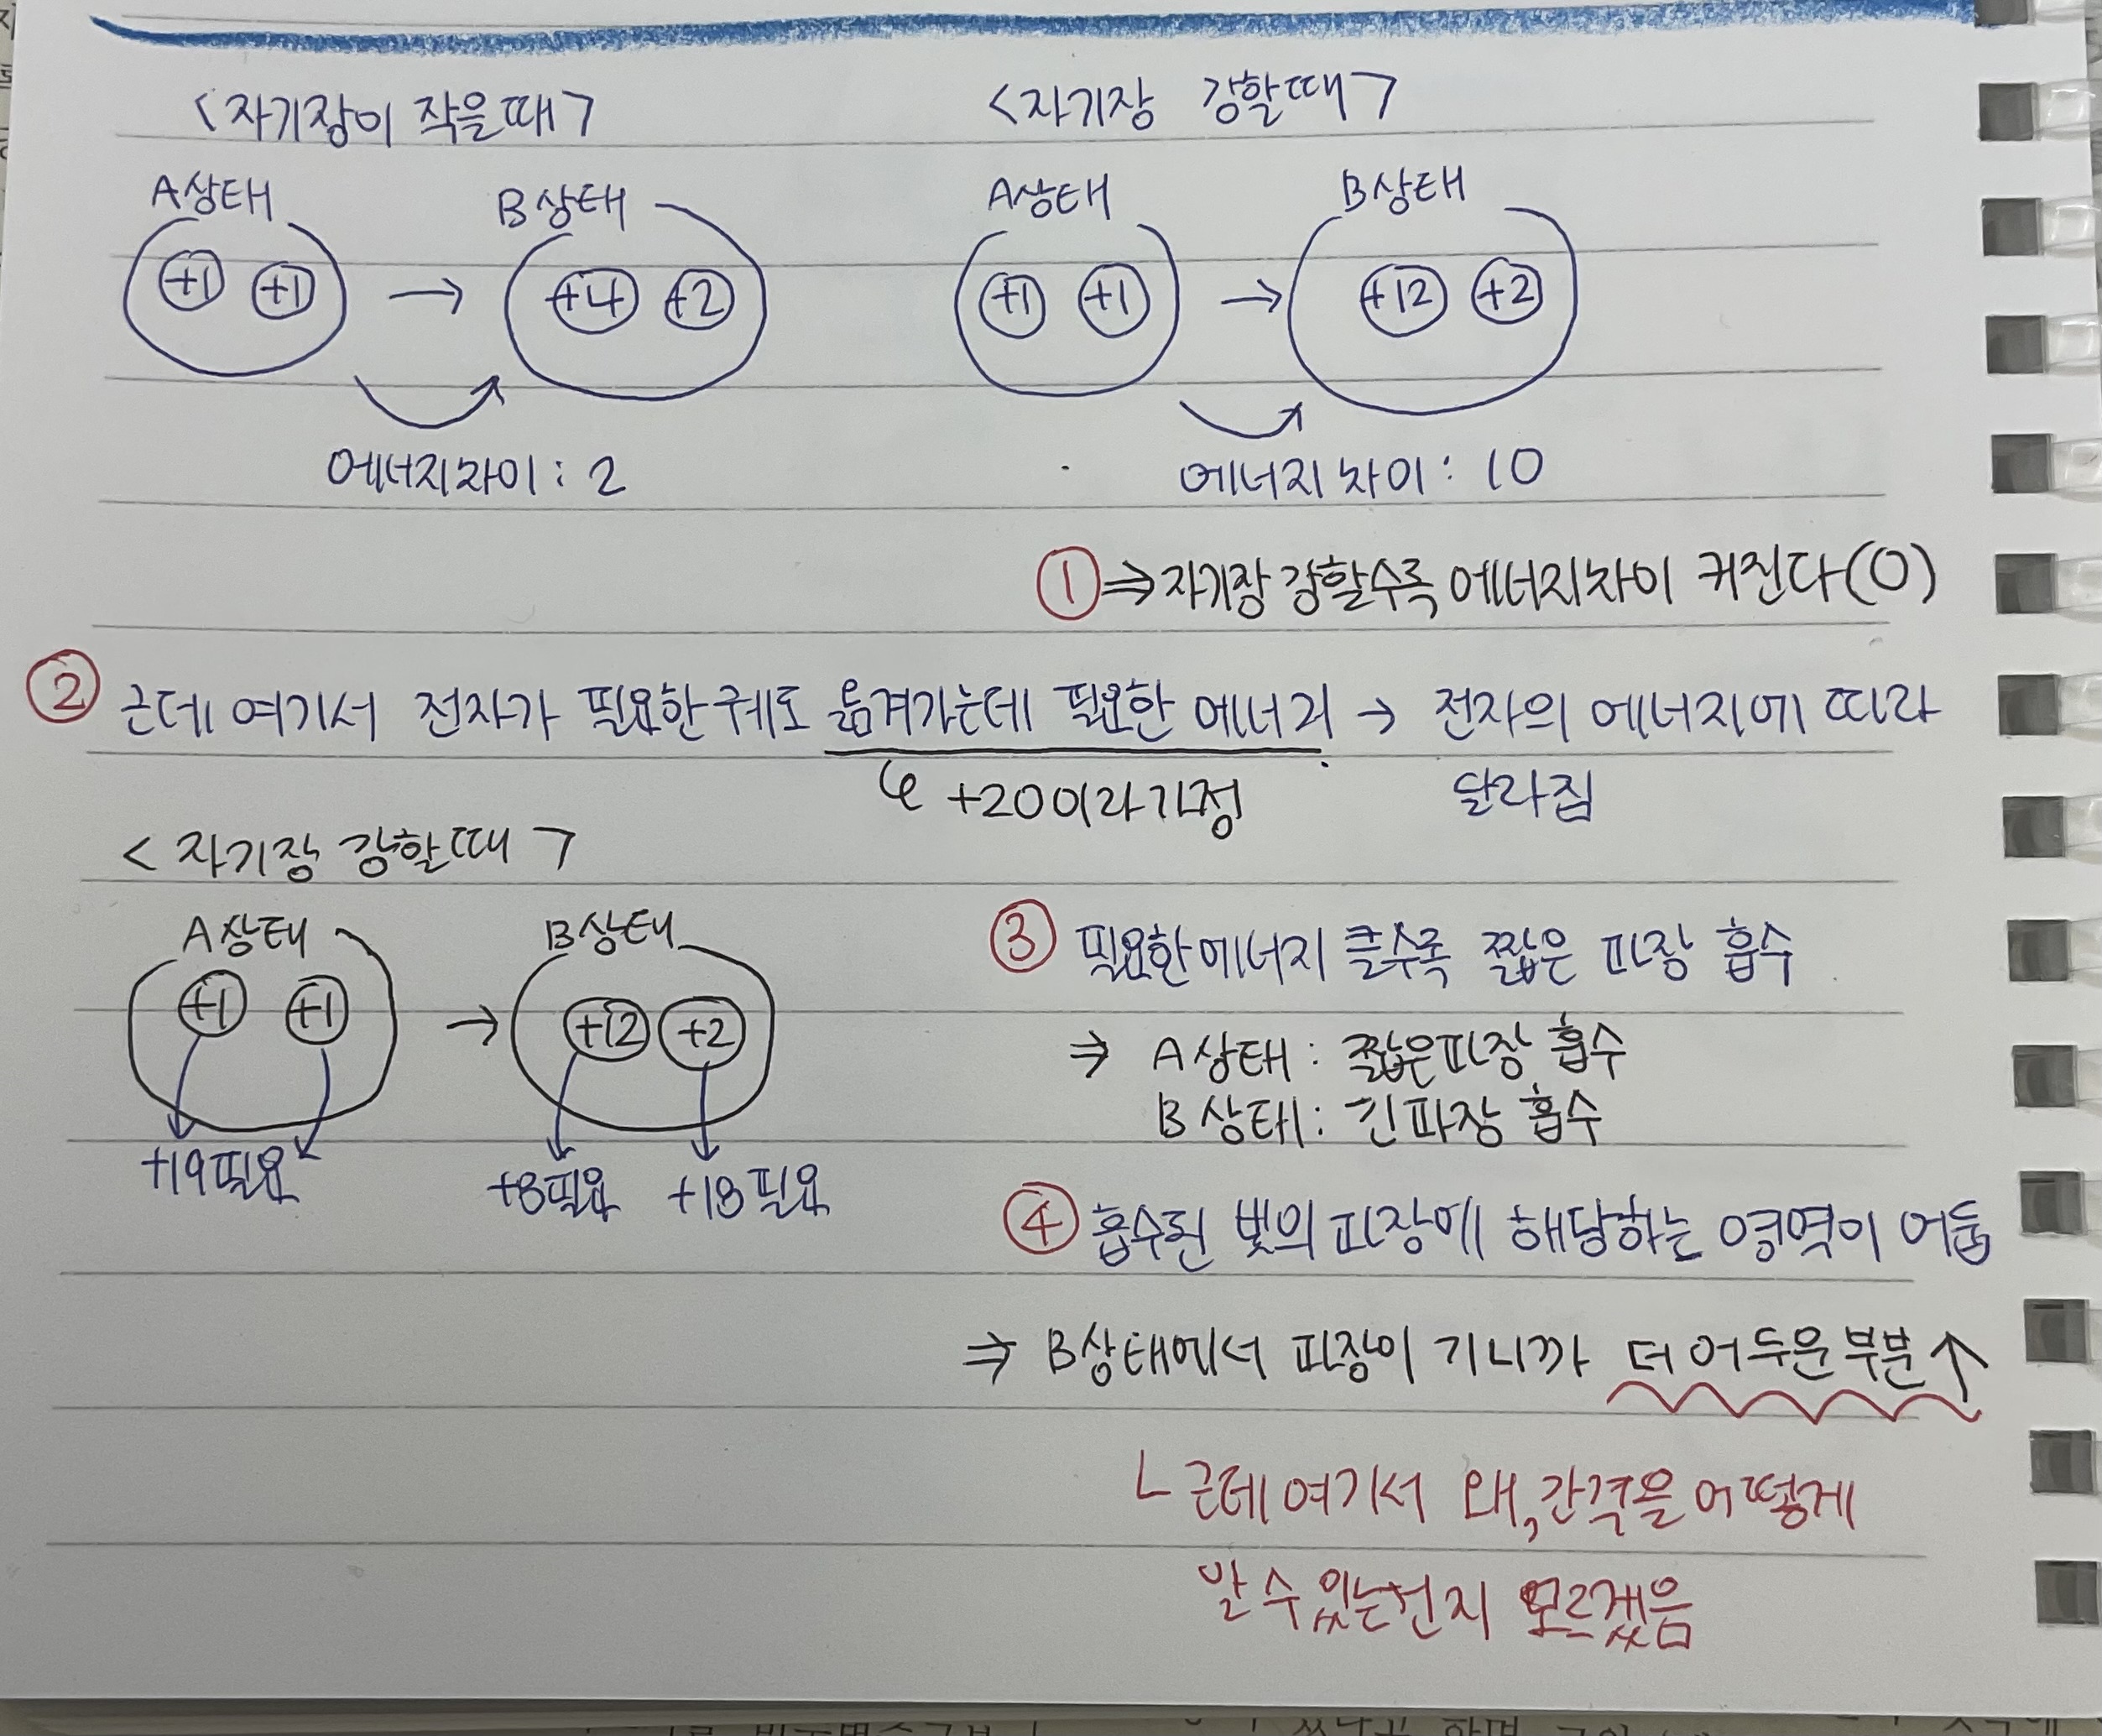 <자기장이 작을때>
<자기장 강할때>
A상태
B상태
+1 +1 → +4 +2
에너지차이 : 2
A상태
B상태
+1 +1 → +12 +2
에너지차이 : 10
① ⇒ 자기장 강할수록 에너지차이 커진다(O)
② 근데 여기서 전자가 필요한 궤도 옮겨가는데 필요한 에너지 → 전자의 에너지에 따라
달라짐
+20이라가정
<자기장 강할때>
A상태
B상태
+1 +1 → +12 +2
+19필요
+8필요 +18필요
③ 필요한에너지 클수록 짧은 파장 흡수
⇒ A상태 : 짧은파장 흡수
B상태 : 긴파장 흡수
④ 흡수된 빛의 파장에 해당하는 영역이 어둡
⇒ B상태에서 파장이 기니까 더 어두운부분↑
ㄴ 근데 여기서 왜, 간격을 어떻게
알 수 있는건지 모르겠음